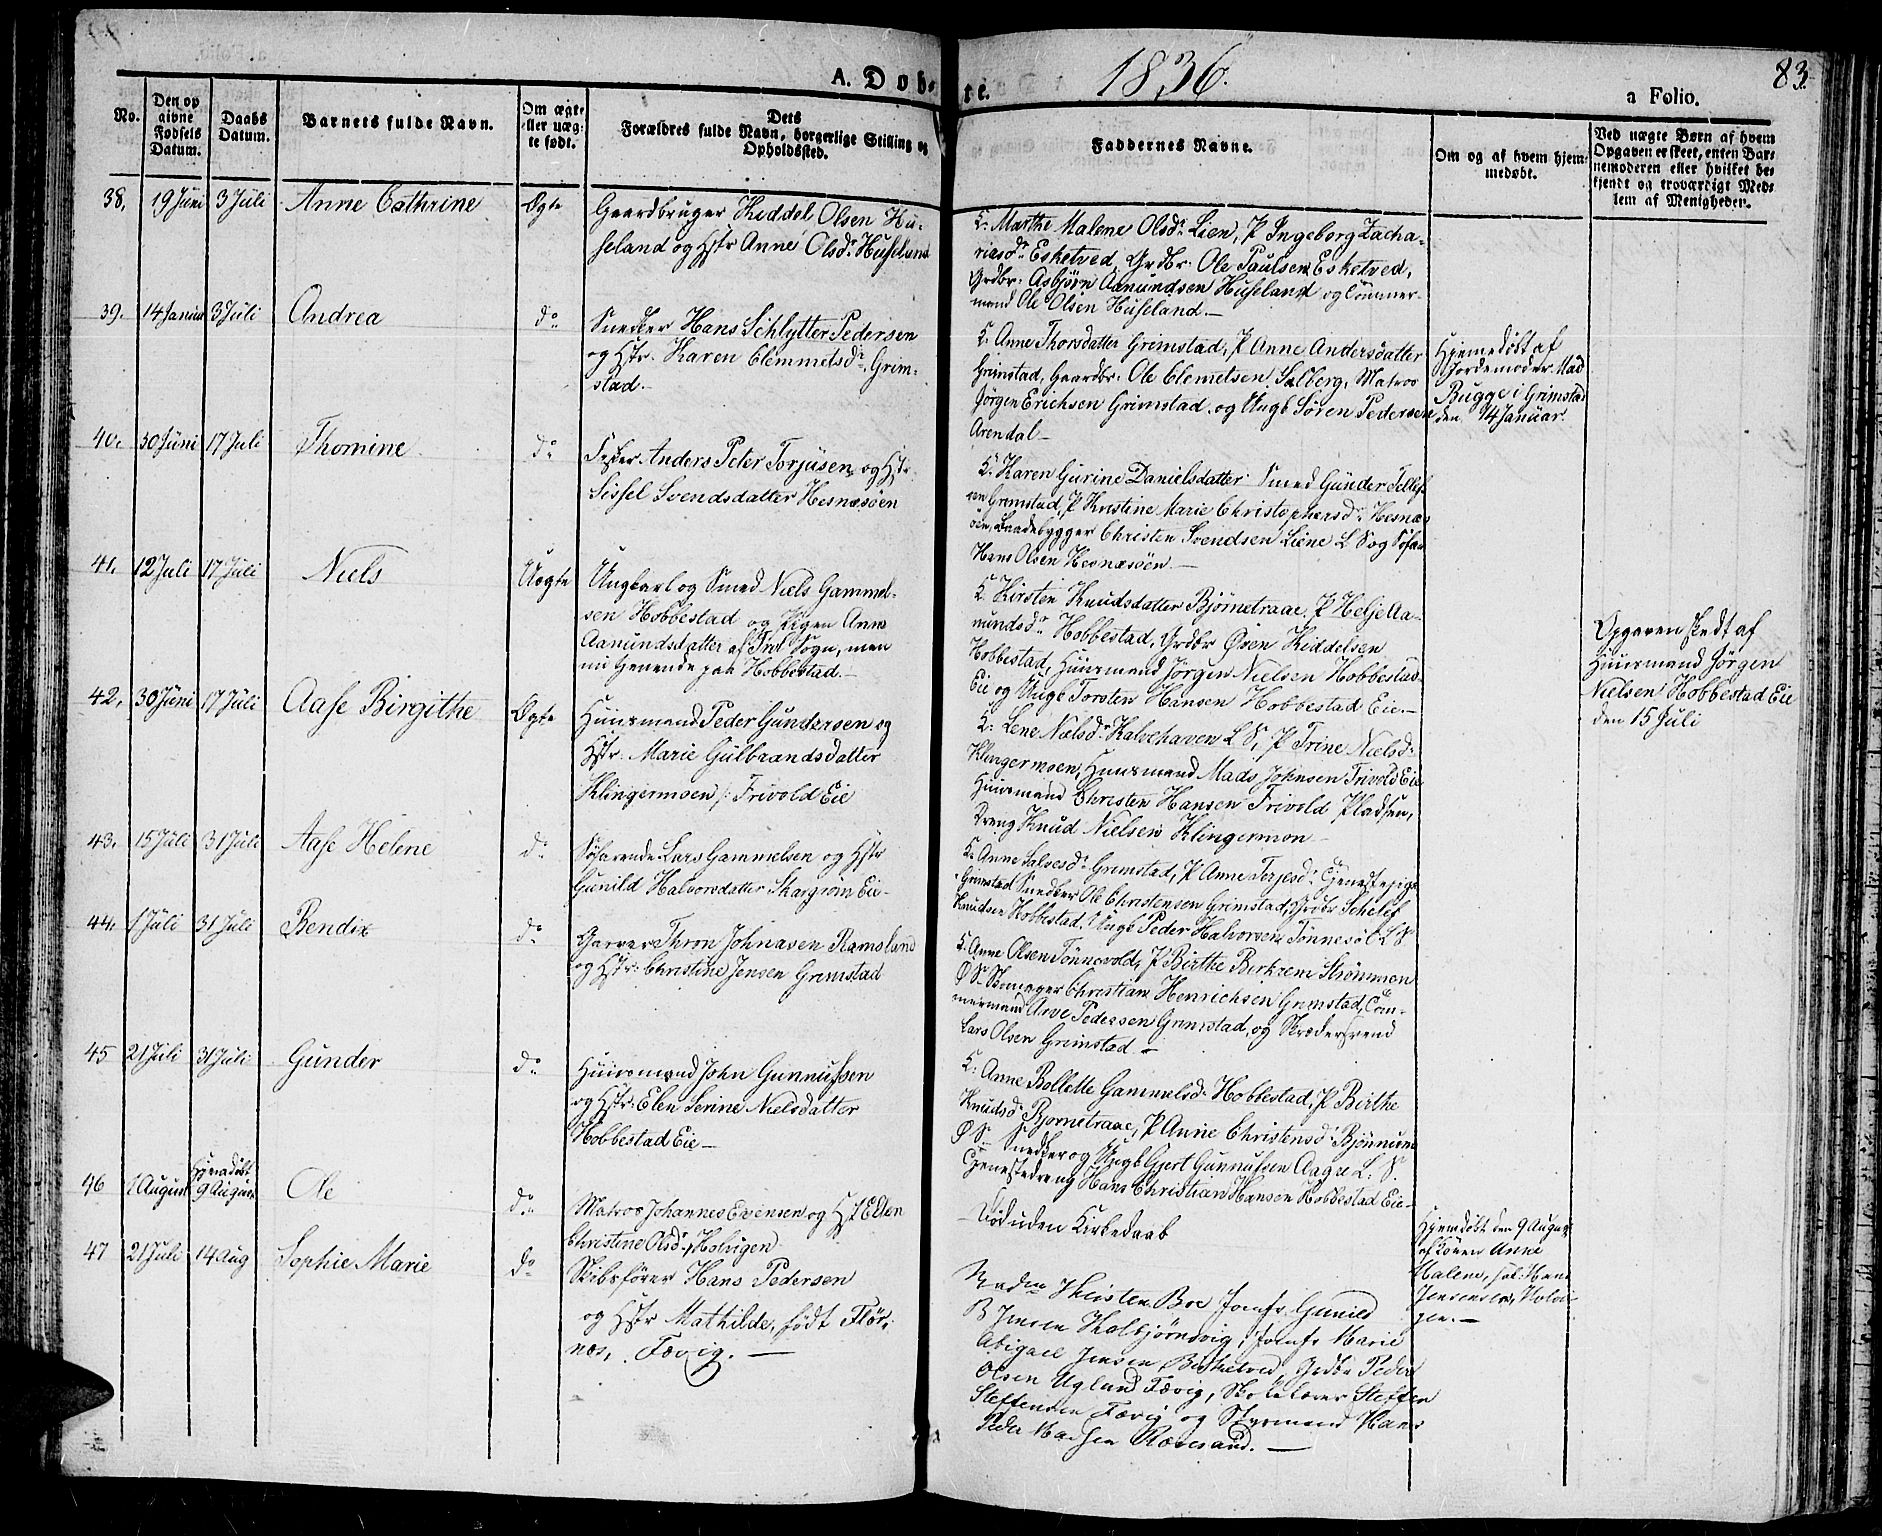 A. Døbte.
1836.
a Folio.
83.
No.
Den opgivne Fødsels Datum.
Daabs Datum.
Barnets fulde Navn.
Om ægte eller uægte født.
Dets Forældres fulde Navn, borgerlige Stilling og Opholdssted.
Faddernes Navne.
Om og af hvem hjemmedøbt.
Ved uægte Børn af hvem
Opgaven er skeet, enten Bar-
nemoderen eller hvilket be-
kjendt og troværdigt Med-
lem af Menigheden.
38. 19 Juni 3 Juli Anne Cathrine Ægte
Gaardbruger Kiddel Olsen Hu-
seland og Hstr Anne Olsdr Huseland
K: Marthe Malene Olsdr Lien, P Ingeborg Zacha-
riasdr Esketved, Grdbr: Ole Paulsen Esketved,
Grdbr: Asbjørn Aanundsen Huseland og Tømmer-
mand Ole Olsen Huseland.—
39. 14 Januar 3 Juli Andrea do
Snedker Hans Schlytter Pedersen
og Hstr. Karen Clemmetsdr Grim-
stad.
K: Anne Thorsdatter Grimstad, P Anne Andersdatter
Grimstad, Gaardbr: Ole Clemetsen Salberg, Matros
Jørgen Erichsen Grimstad og Ungk Søren Pedersen
Arendal—
Hjemmedøbt af
Jordemoder Mad
Bugge i Grimstad
den 14 Januar
40. 30 Juni 17 Juli Thomine do
Fisker Anders Peter Torjusen og Hstr
Sissel Svendsdatter Hesnæsøen
K: Karen Gurine Danielsdatter Smed Gunder Tellef-
sen Grimstad, P Kristine Marie Christophersdr Hesnæs-
øen, Baadebygger Christen Svendsen Liene L S og Søfar
Hans Olsen Hesnæsøen.—
41. 12 Juli 17 Juli Niels Uægte
Ungkarl og Smed Niels Gammel-
sen Hobbestad og Pigen Anne
Aanundsdatter af Sogn, men
nu tjenende paa Hobbestad.—
K: Kirsten Knudsdatter Bjørnetraae, P Helje Aa-
nundsdr Hobbestad, Grdbr Øven Kiddelsen
Hobbestad, Huusmand Jørgen Nielsen Hobbestad
Eie og Ungk Torsten Hansen Hobbestad Eie.—
Opgaven skedt af
Huusmand Jørgen
Nielsen Hobbestad Eie
den 15 Juli
42. 30 Juni 17 Juli Aase Birgithe Ægte
Huusmand Peder Gundersen og
Hstr. Marie Gulbrandsdatter
Klingermoen /: Frivold Eie
K: Lene Nielsdr Kalvehaven L S, P Trine Nielsdr
Klingermoen, Huusmand Mads Johnsen Frivold Eie
Huusmand Christen Hansen Frivold Pladsen,
Dreng Knud Nielsen Klingermon—
43. 15 Juli 31 Juli Aase Helene do
Søfarende Lars Gammelsen og Hstr
Gunild Halvorsdatter Skargrøm Eie—
K: Anne Salvesdr Grimstad, P Anne Terjesdr Tjenestepige
Grimstad Snedker Ole Christensen Grimstad, Grdbr Schelef
Knudsen Hobbestad, Ungk Peder Halvorsen Tønnesøl L S
44. 1 Juli 31 Juli Bendix do
Garver Thron Johnasen Ramsland
og Hstr: Christine Jensen Grimstad
K: Anne Olsen Tønnevold, P Birthe Birkrem Strømmen
Ø S Skomager Christian Henrichsen Grimstad, Tøm-
mermand Arve Pedersen Grimstad, og Skrædersvend
Lars Olsen Grimstad—
45 21 Juli 31 Juli Gunder do
Huusmand John Gunnufsen
og Hstr: Elen Serine Nielsdatter
Hobbestad Eie—
K: Anne Bollette Gammelsdr Hobbestad, P Birthe
Knudsdr Bjørnetraae, P Anne Christensdr Bjønnum
Ø S Snedker og Ungk Gjert Gunnufsen Aagre L. S.
Tjenestedreng Hans Christian Hansen Hobbestad Eie—
46 1 August Hjemdøbt 9 August Ole do
Matros Johannes Evensen og Hstr Ellen
Christine Olsdr, Holvigen
Død uden Kirkedaab
Hjemdøbt den 9 August
af Konen Anne
Malene,
Jensensen, Holvi-
gen.—
47 21 Juli 14 Aug Sophie Marie do
Skibsfører Hans Pedersen
og Hstr Mathilde, født Flør-
næs, Fævig.—
Madme Thersten Boe Jomfr Gunild
B Jensen Kalbjørnsvig, Jomfr Marie
Abigael Jensen Birketved, Grdbr Peder
Olsen Ugland Fævig, Skolelærer Steffen
Steffensen Fævig og Styrmand Hans
Peder Ræresand.—